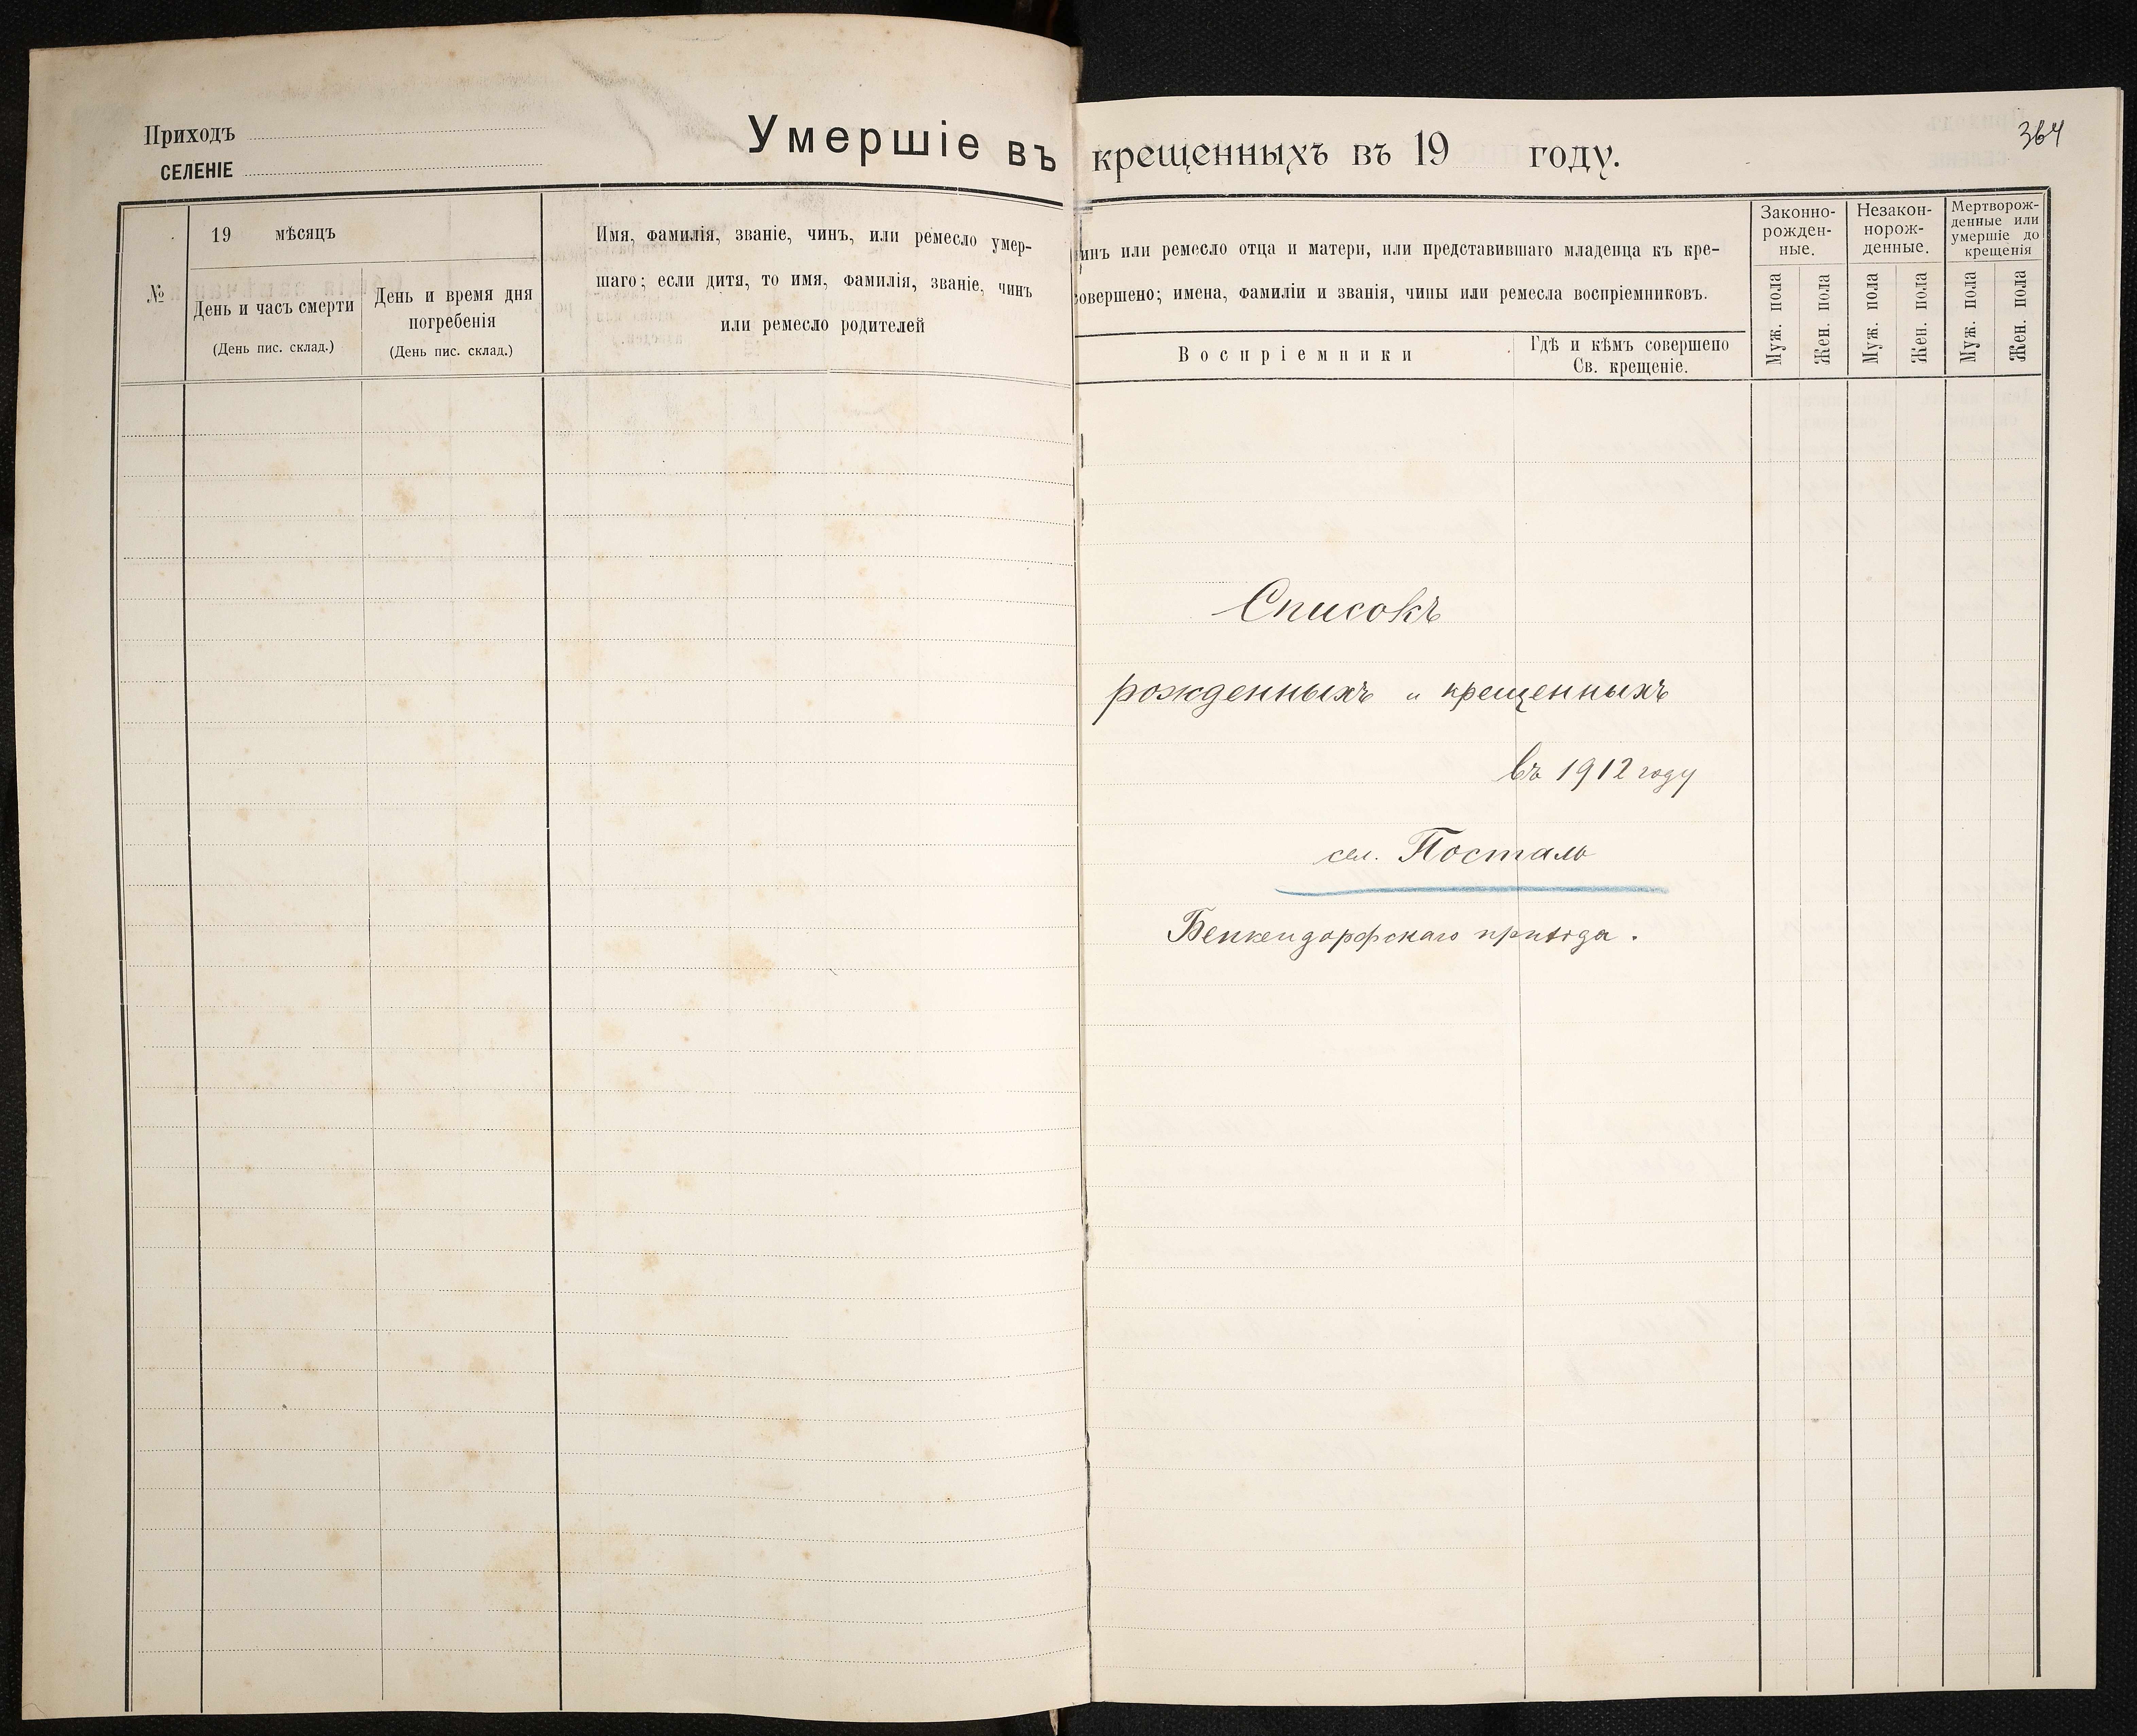 Приходъ
СЕЛЕНІЕ
Умершіе въ
№
19 мѣсяцъ
День и часъ смерти
(День пис. склад.)
День и время дня
погребенія
(День пис. склад.)
Имя, фамилія, званіе, чинъ, или ремесло умер-
шаго; если дитя, то имя, фамилія, званіе, чинъ
или ремесло родителей
364
крещенныхъ въ 19 году.
инъ или ремесло отца и матери, или представившаго младенца къ кре-
овершено; имена, фамиліи и званія, чины или ремесла воспріемниковъ.
Воспріемники
Гдѣ и кѣмъ совершено
Св. крещеніе.
Законно-
рожден-
ные.
Муж. пола
Жен. пола
Незакон-
норож-
денные.
Муж. пола
Жен. пола
Мертворож-
денные или
умершіе до
крещенія
Муж. пола
Жен. пола
Списокъ
рожденныхъ и крещенныхъ
въ 1912 году
сел. Посталь
Бенкендорфскаго прихода.